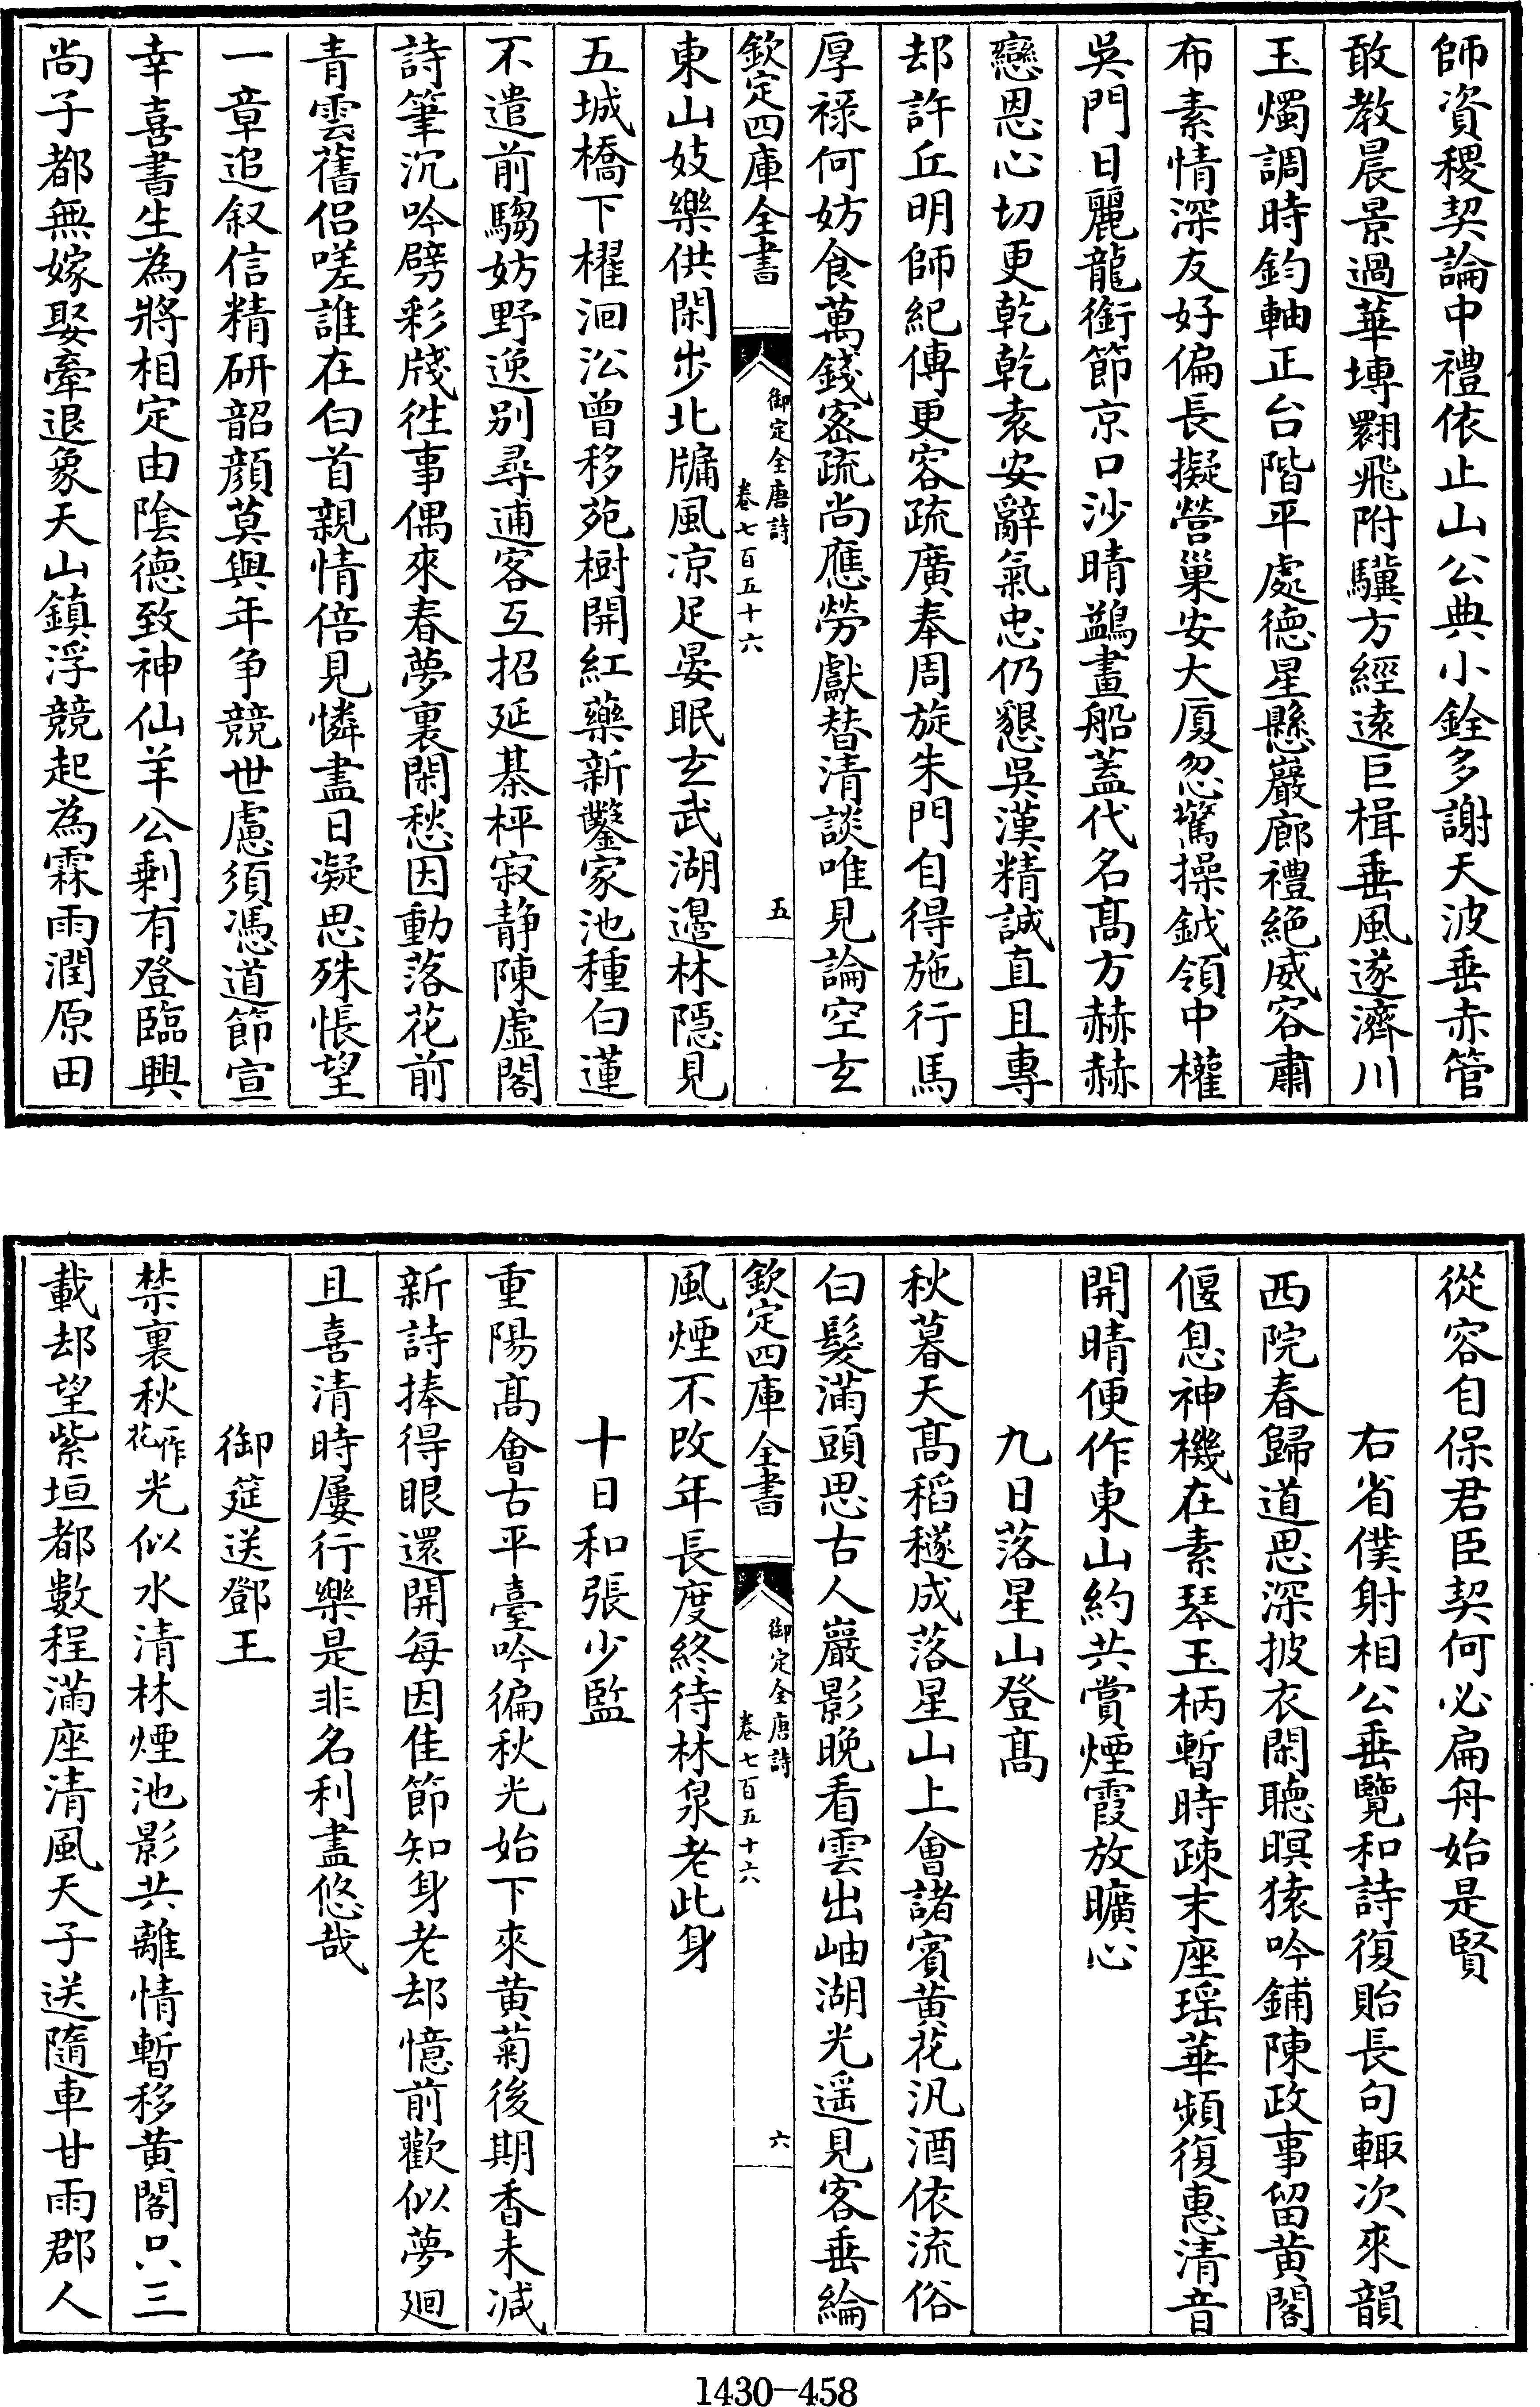 師資稷契論中禮依止山公典小銓多謝天波垂赤管
敢教晨景過華塼翾飛附驥方經遠巨楫垂風遂濟川
玉燭調時鈞軸正台階平處德星懸巖廊禮絕威容肅
布素情深友好偏長擬營巢安大厦忽驚操鉞領中權
吳門日麗龍銜節京口沙晴鷁畫船蓋代名髙方赫赫
戀恩心切更乾乾袁安辭氣忠仍懇吳漢精誠直且專
却許丘明師紀傳更容疏廣奉周旋朱門自得施行馬
厚祿何妨食萬錢密疏尚應勞獻替清談唯見論空玄
欽定四庫全書
御定全唐詩
卷七百五十六
五
東山妓樂供閑步北牖風凉足晏眠玄武湖邉林隱見
五城橋下櫂洄㳂曾移苑樹開紅藥新鑿家池種白蓮
不遣前騶妨野逸别尋逋客互招延棊枰寂静陳虛閣
詩筆沉吟劈彩牋徃事偶來春夢裏閑愁因動落花前
青雲舊侣嗟誰在白首親情倍見憐盡日凝思殊悵望
一章追叙信精研韶顔莫與年争競世慮須憑道節宣
幸喜書生為將相定由陰德致神仙羊公剰有登臨興
尚子都無嫁娶牽退象天山鎮浮競起為霖雨潤原田
從容自保君臣契何必扁舟始是賢
右省僕射相公垂覽和詩復貽長句輙次來韻
西院春歸道思深披衣閑聽暝猿吟鋪陳政事留黄閣
偃息神機在素琴玉柄暫時疎末座瑶華頻復惠清音
開晴便作東山約共賞煙霞放曠心
九日落星山登髙
秋暮天髙稻穟成落星山上會諸賓黄花汎酒依流俗
白髮滿頭思古人巖影晚看雲出岫湖光遥見客垂綸
欽定四庫全書
御定全唐詩
卷七百五十六
六
風煙不改年長度終待林泉老此身
十日和張少監
重陽髙會古平臺吟徧秋光始下來黄菊後期香未减
新詩捧得眼還開每因佳節知身老却憶前歡似夢廻
且喜清時屢行樂是非名利盡悠哉
御筵送鄧王
禁裏秋一作花光似水清林煙池影共離情暫移黄閣只三
載却望紫垣都數程滿座清風天子送隨車甘雨郡人
1430-458